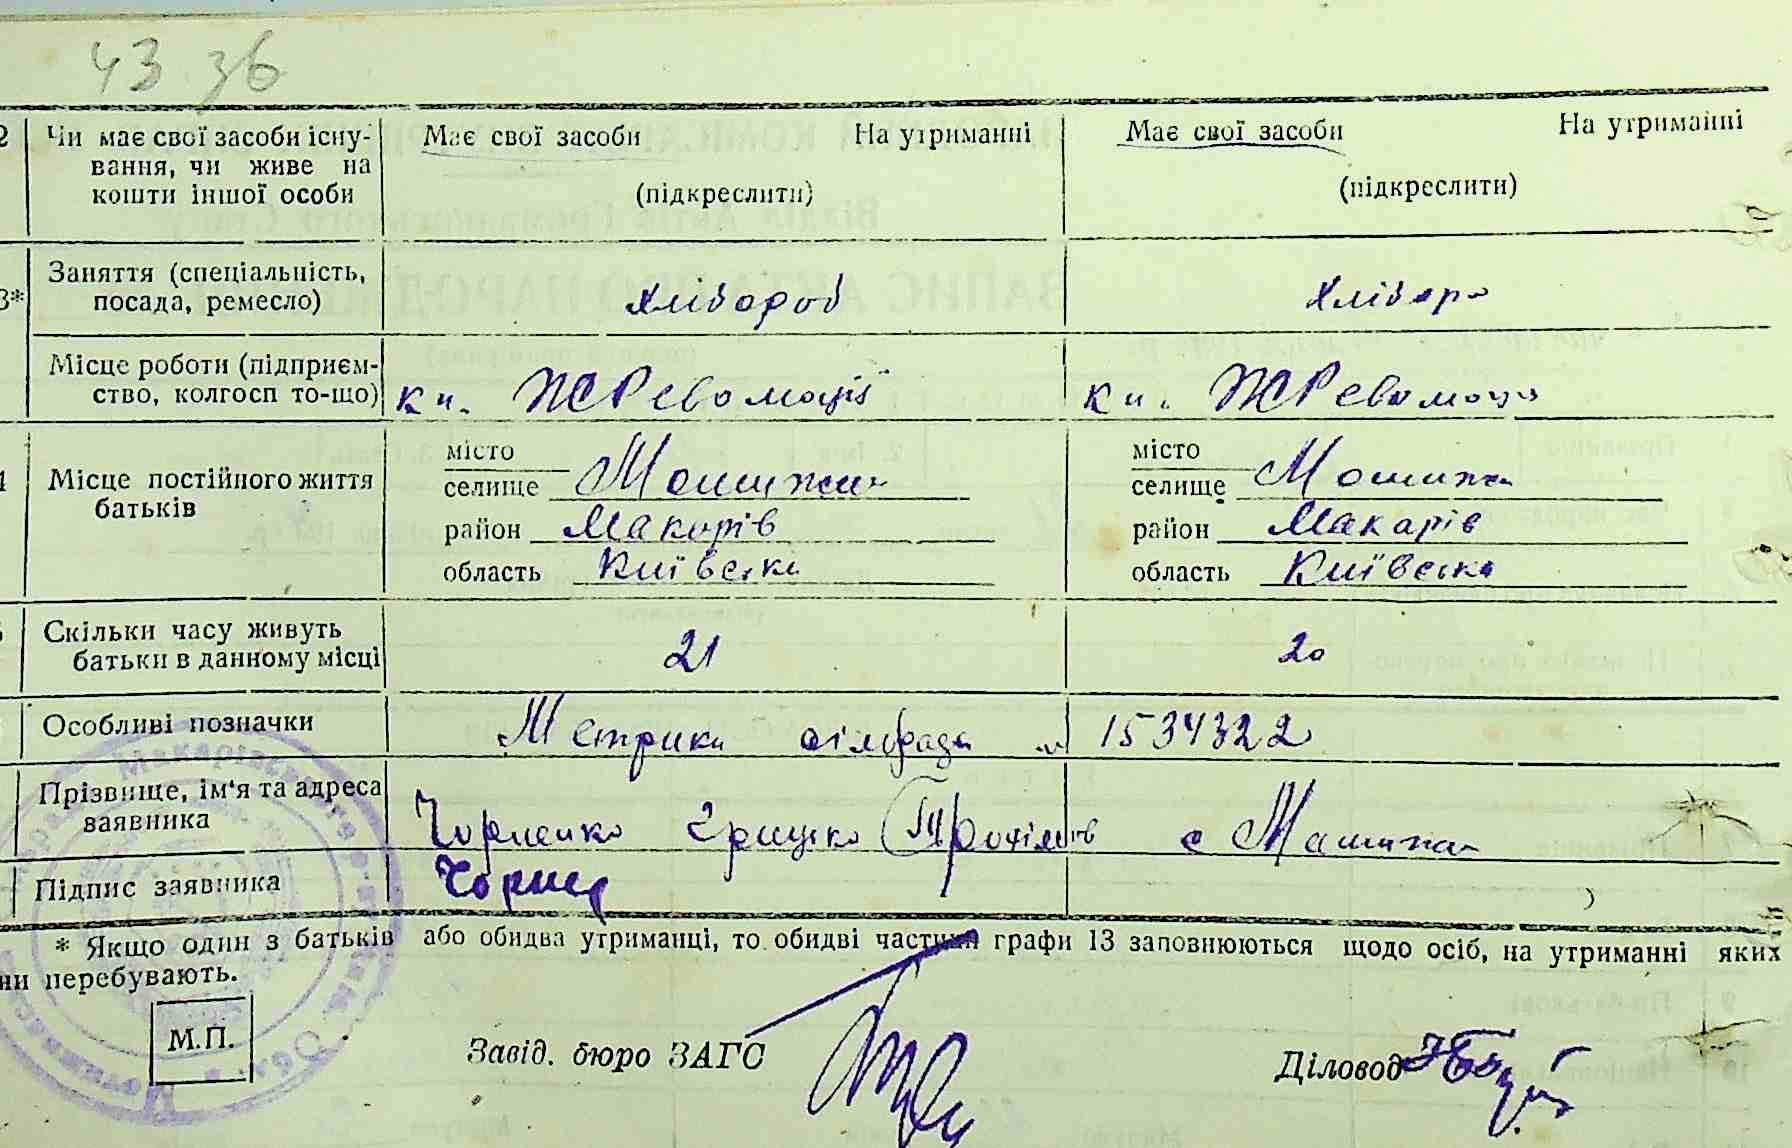 43 36
2 Чи має свої засоби існу- Має свої засоби На утриманні Має свої засоби На утриманні
вання, чи живе на
кошти іншої особи (підкреслити) (підкреслити)
3* Заняття (спеціальність,
посада, ремесло) Хлібороб Хлібор
Місце роботи (підприєм-
ство, колгосп то-що) к и. ЖРеволюції к и. ЖРеволюци
місто місто
4 Місце постійного життя селище Мошижин селище Мошижи
батьків район Макарів район Макарів
область Київська область Київська
Скільки часу живуть
батьки в данному місці 21 20
Особливі позначки Метрика сільради № 1534322
Прізвище, ім'я та адреса
заявника Чорненко Грицко с Машижа
Підпис заявника Чорне
* Якщо один з батьків або обидва утриманці, то обидві частини графи 13 заповнюються щодо осіб, на утриманні яких
ни перебувають.
М.П.
Завід. бюро ЗАГС
Діловод